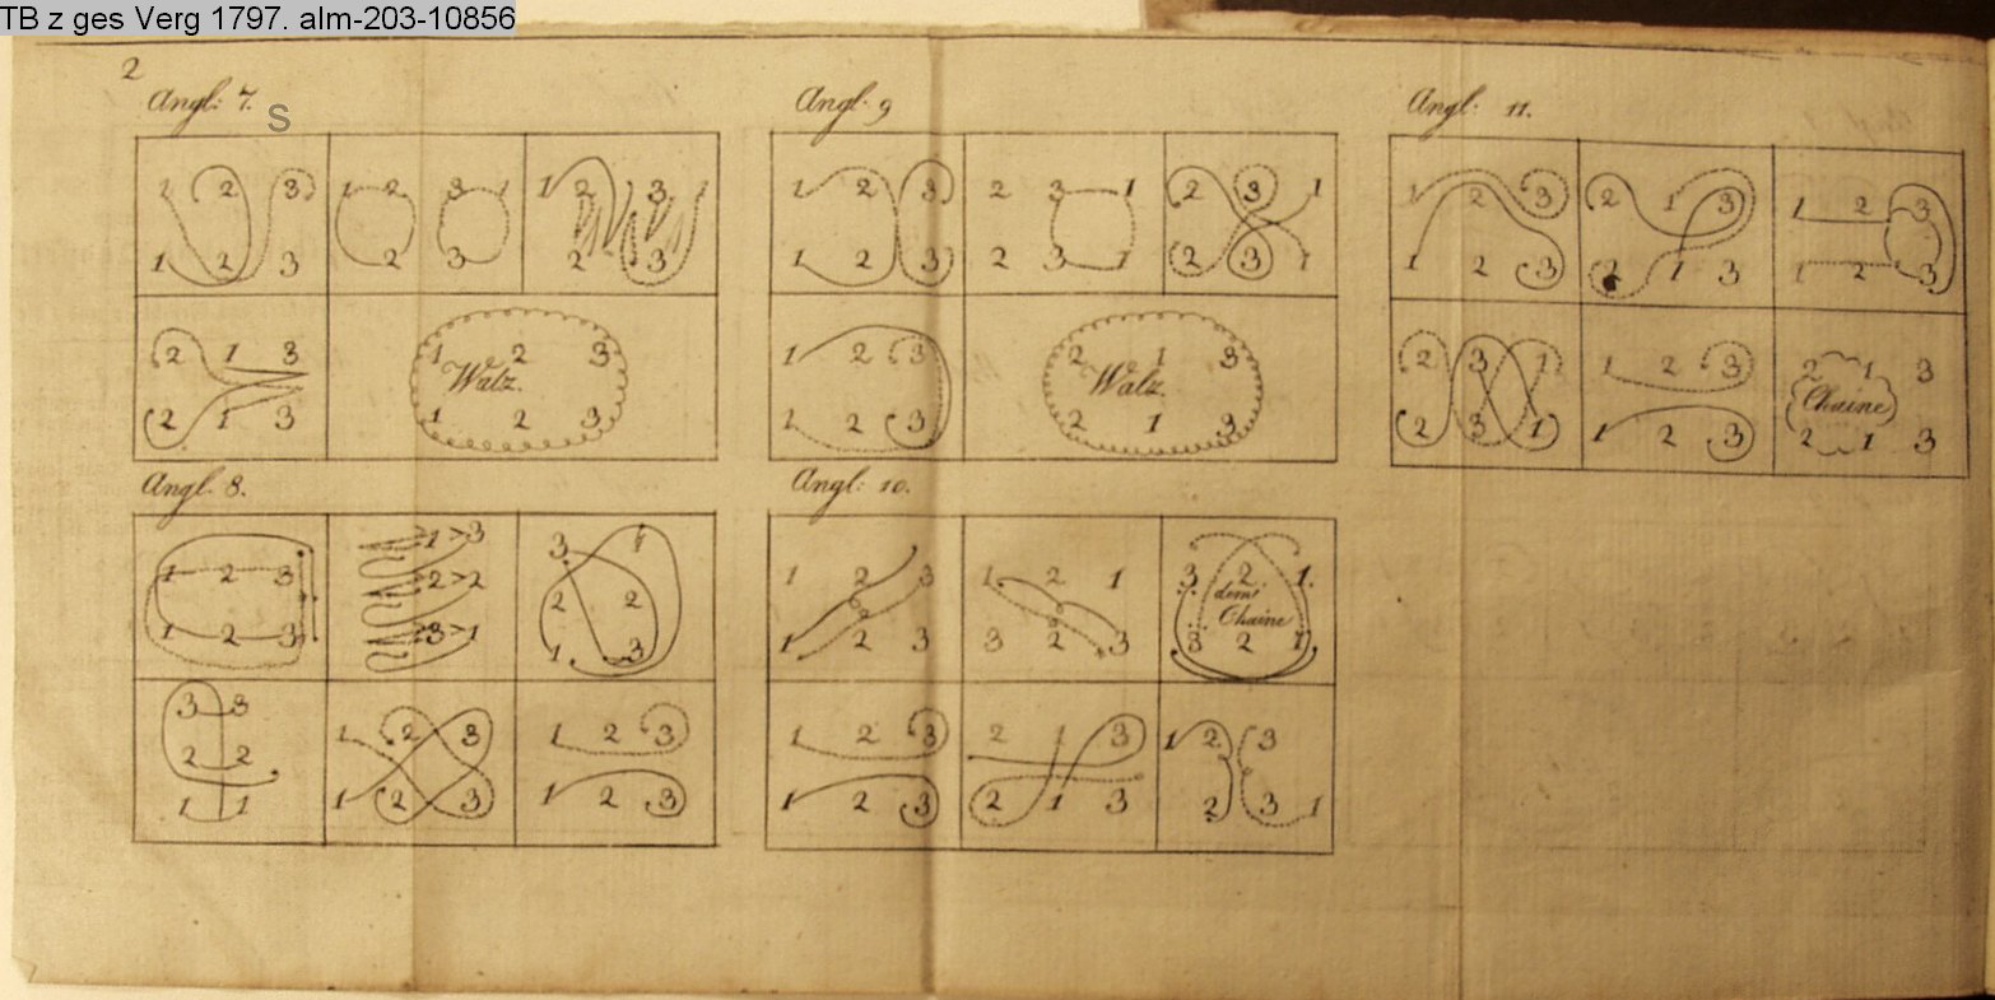 TB z ges Verg 1797. alm-203-10856
2
Angl: 7.
S
1 2 3
1 2 3
1 2 3 1
2 3
1 2 3 1
2 3
2 1 3
2 1 3
1 2 3
Walz.
1 2 3
Angl. 8.
1 2 3
1 2 3
1 > 3
2 > 2
3 > 1
3 1
2 2
1 3
3 3
2 2
1 1
1 2 3
1 2 3
1 2 3
1 2 3
Angl. 9
1 2 3
1 2 3
2 3 1
2 3 1
2 3 1
2 3 1
1 2 3
1 2 3
2 1 3
Walz.
2 1 3
Angl: 10.
1 2 3
1 2 3
1 2 1
3 2 3
3 2. 1.
demi
Chaine
3 2 1
1 2 3
1 2 3
2 1 3
2 1 3
1 2 3
2 3 1
Angl. 11.
1 2 3
1 2 3
2 1 3
2 1 3
1 2 3
1 2 3
2 3 1
2 3 1
1 2 3
1 2 3
2 1 3
Chaine
2 1 3